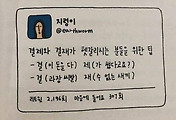 지렁이
@earthworm
결제와 결재가 헷갈리시는 분들을 위한 팁
- 결 (이 돈을 다) 제 (가 썼다고요?)
- 결 (과장 씨발) 재 (수 없는 새끼)
리트윗 2,196회 마음에 들어요 307회